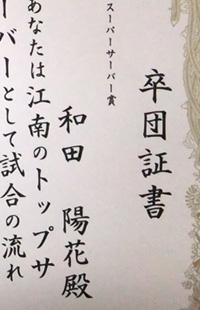 卒団証書
スーパーサーバー賞
和田 陽花殿
あなたは江南のトップサ
ーバーとして試合の流れ